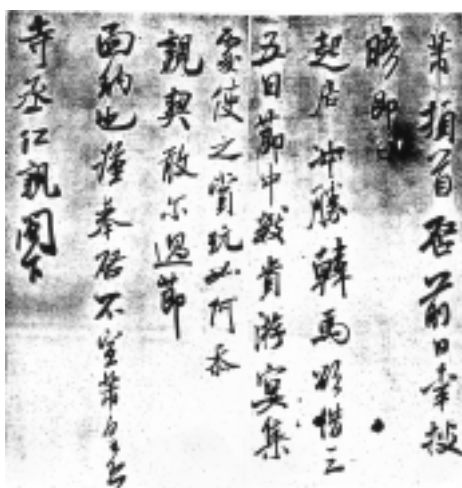 頓首啓前日幸披
晤即日
起居沖勝韓馬欲借三
五日節中數貴游宴集
使之賞玩如何忝
親契敢爾過節
面納也謹奉啓不宣
寺丞仁親閣下